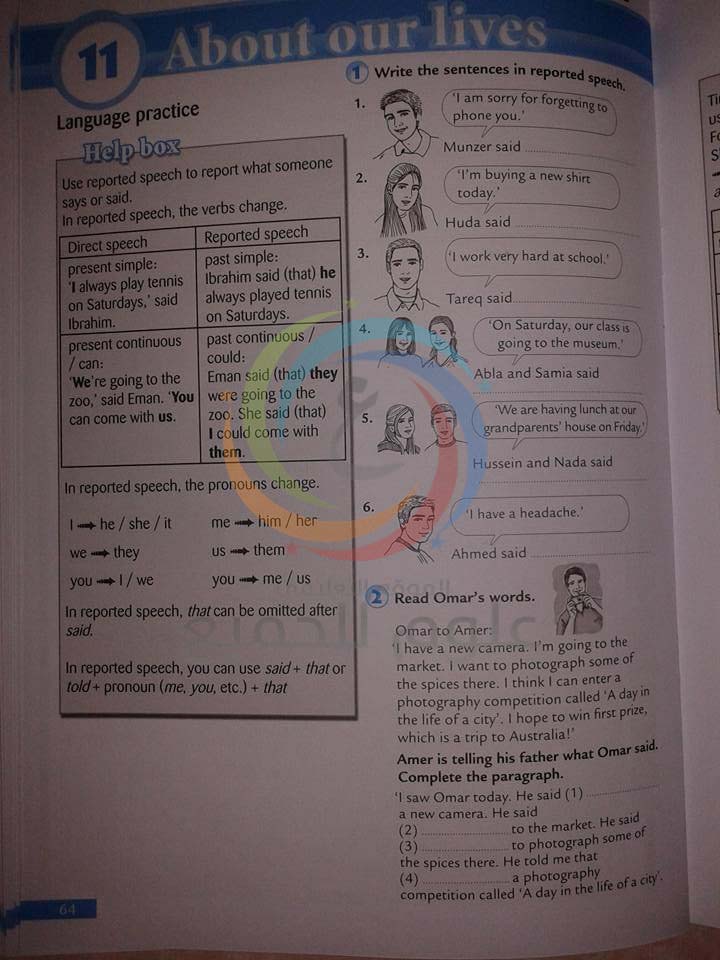 11
About our lives
Language practice
Help box
Use reported speech to report what someone
says or said.
In reported speech, the verbs change.
Direct speech
Reported speech
present simple:
'I always play tennis
on Saturdays,' said
Ibrahim.
past simple:
Ibrahim said (that) he
always played tennis
on Saturdays.
present continuous
/ can:
'We're going to the
zoo,' said Eman. 'You
can come with us.
past continuous /
could:
Eman said (that) they
were going to the
zoo. She said (that)
I could come with
them.
In reported speech, the pronouns change.
I ➟ he / she / it
me ➟ him / her
we ➟ they
us ➟ them
you ➟ I / we
you ➟ me / us
In reported speech, that can be omitted after
said.
In reported speech, you can use said + that or
told + pronoun (me, you, etc.) + that
64
1 Write the sentences in reported speech.
1.
'I am sorry for forgetting to
phone you.'
Munzer said
2.
'I'm buying a new shirt
today.'
Huda said
3.
'I work very hard at school.'
Tareq said
4.
'On Saturday, our class is
going to the museum.'
Abla and Samia said
5.
'We are having lunch at our
grandparents' house on Friday.'
Hussein and Nada said
6.
'I have a headache.'
Ahmed said
2 Read Omar's words.
Omar to Amer:
'I have a new camera. I'm going to the
market. I want to photograph some of
the spices there. I think I can enter a
photography competition called 'A day in
the life of a city'. I hope to win first prize,
which is a trip to Australia!'
Amer is telling his father what Omar said.
Complete the paragraph.
'I saw Omar today. He said (1)
a new camera. He said
(2) to the market. He said
(3) to photograph some of
the spices there. He told me that
(4) a photography
competition called 'A day in the life of a city'.